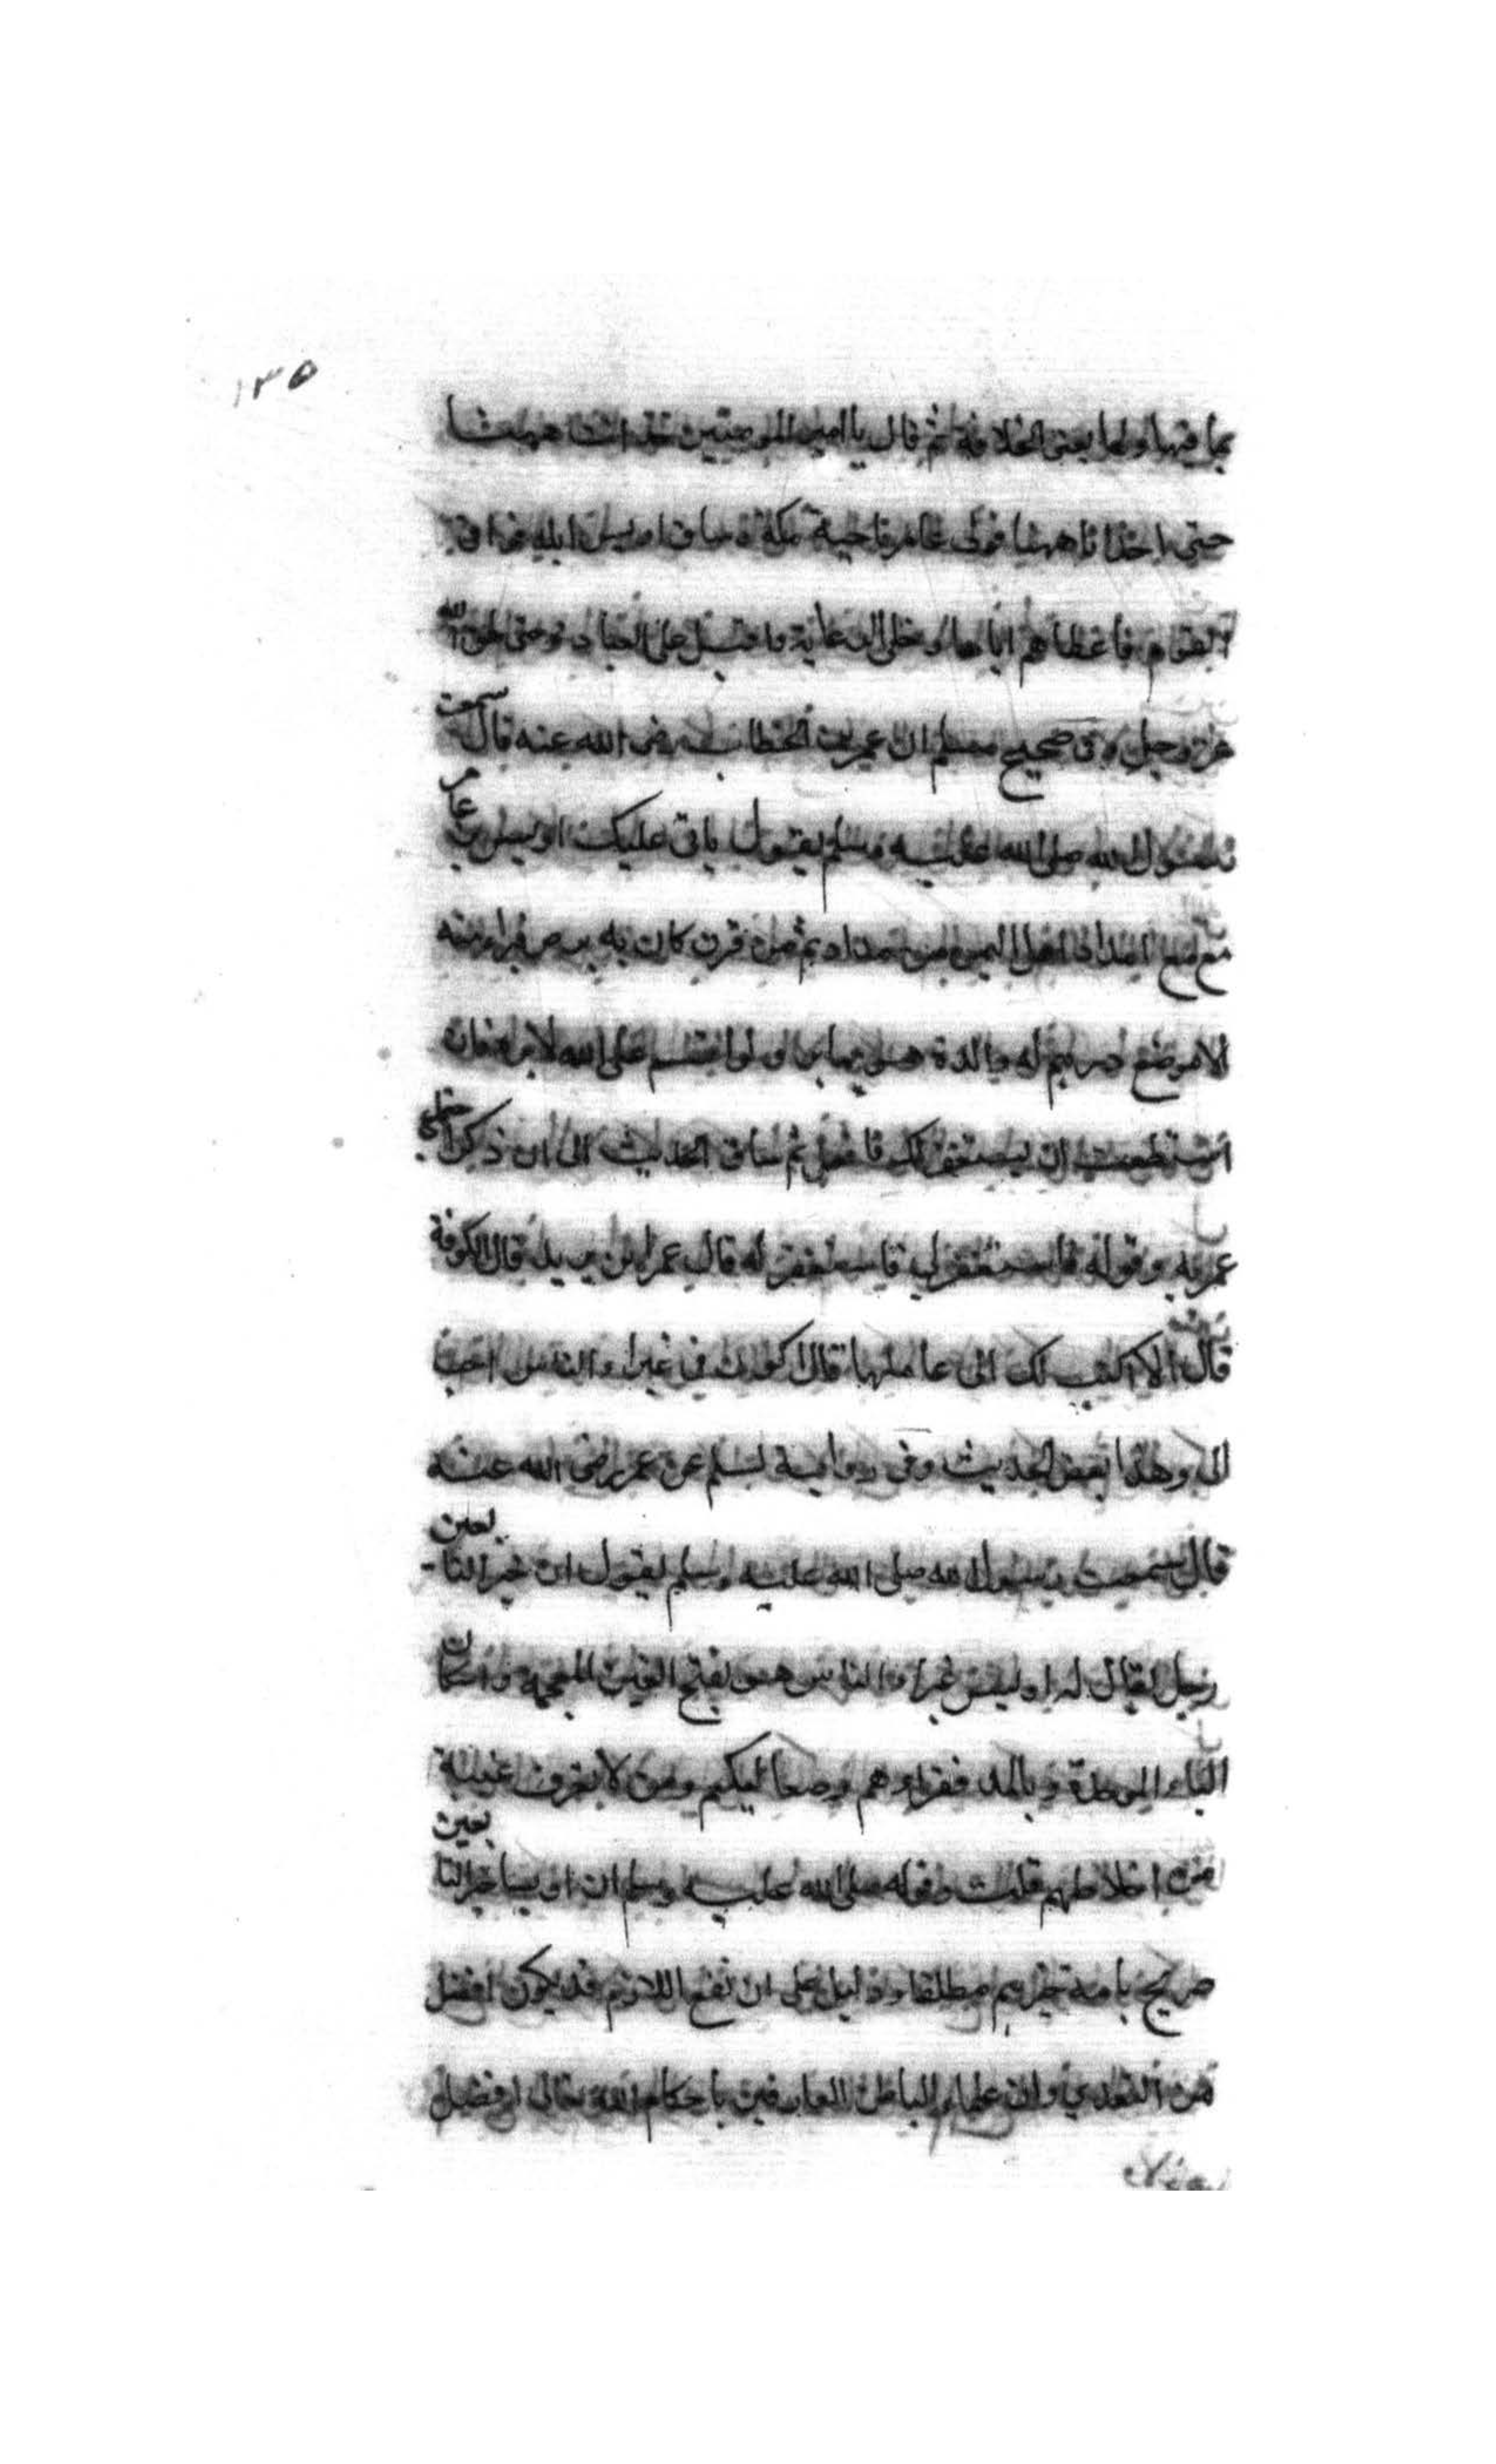 ١٣٥
بما فيها ولها يعني الخلافة ثم قال يا امير المومنين خذ انت ههنا
حتى اخذ انا ههنا فولى عمر ناحية مكة وساق اويس ابله فوافى
القوم فاعطاهم اياها وخلى الرعاية واقبل على العبادة حتى لحق الله
عز وجل وفي صحيح مسلم ان عمر بن الخطاب رضي الله عنه قال سمعت
رسول الله صلى الله عليه وسلم يقول ياتي عليكم اويس بن عامر
مع امداد اهل اليمن من مراد ثم من قرن كان به برص فبرا منه
الا موضع درهم له والدة هو بها بر لو اقسم على الله لابره فان
استطعت ان يستغفر لك فافعل ثم ساق الحديث الى ان ذكر اجتماع
عمر به وقوله فاستغفر لي فاستغفر له قال عمر اين تريد قال الكوفة
قال الا اكتب لك الى عاملها قال اكون في غبراء الناس احب
الي وهذا بعض الحديث وفي رواية لمسلم عن عمر رضي الله عنه
قال سمعت رسول الله صلى الله عليه وسلم يقول ان خير التابعين
رجل يقال له اويس غبراء الناس هو بفتح الغين المعجمة واسكان
الباء الموحدة وبالمد فقراوهم وصعاليكهم ومن لا يعرف عينه
من اخلاطهم قلت وقوله صلى الله عليه وسلم ان اويسا خير التابعين
صريح بانه خيرهم مطلقا ودليل على ان نفع اللازم قد يكون افضل
من التعدي وان علماء الباطن العارفين باحكام الله تعالى افضل